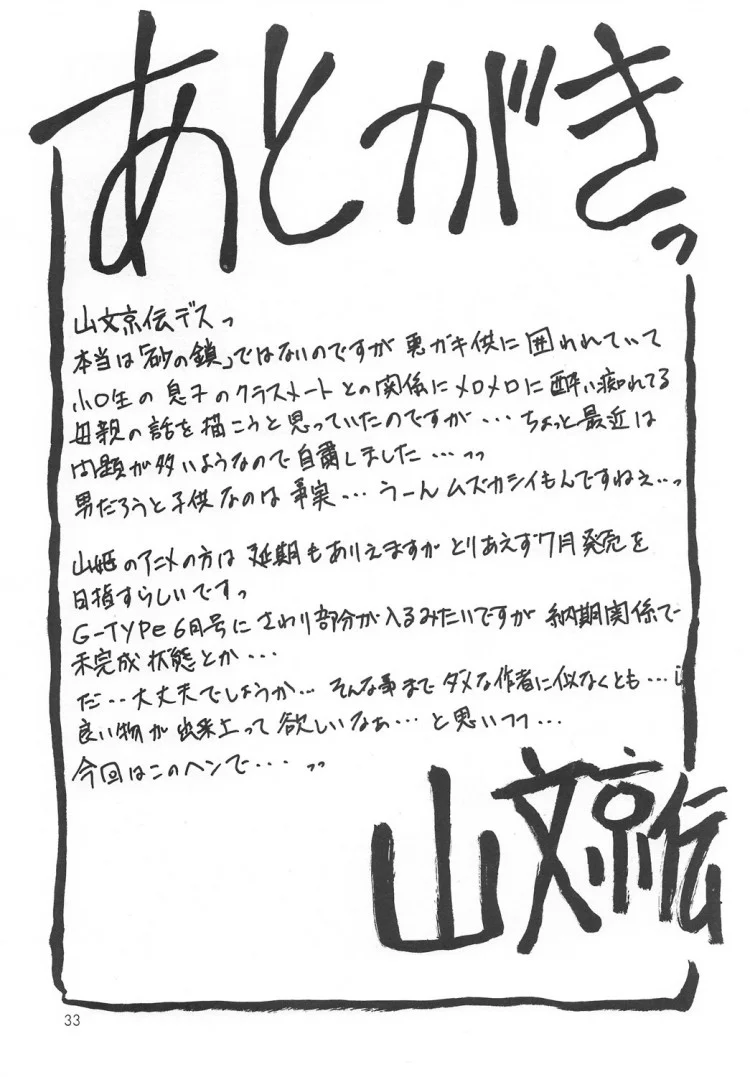 あとがきっ
山文京伝デスっ
本当は「砂の鎖」ではないのですが 悪ガキ供に囲われれていて
小○生の息子のクラスメートとの関係にメロメロに酔い痴れてる
母親の話を描こうと思っていたのですが・・・ちょっと最近は
問題が多いようなので自粛しました・・・っっ
男だろうと子供なのは事実・・・うーん ムズカシイもんですねぇ・・っ
山姫のアニメの方は 延期もありえますが とりあえず7月発売を
目指すらしいですっ
G-TYPe 6月号に さわり部分が入るみたいですが 納期関係で
未完成状態とか・・・
だ・・大丈夫でしょうか・・・ そんな事まで ダメな作者に似なくとも・・・
良い物が 出来上って 欲しいなぁ・・・ と思いつつ・・・
今回はこのヘンで・・・っっ
山文京伝
33